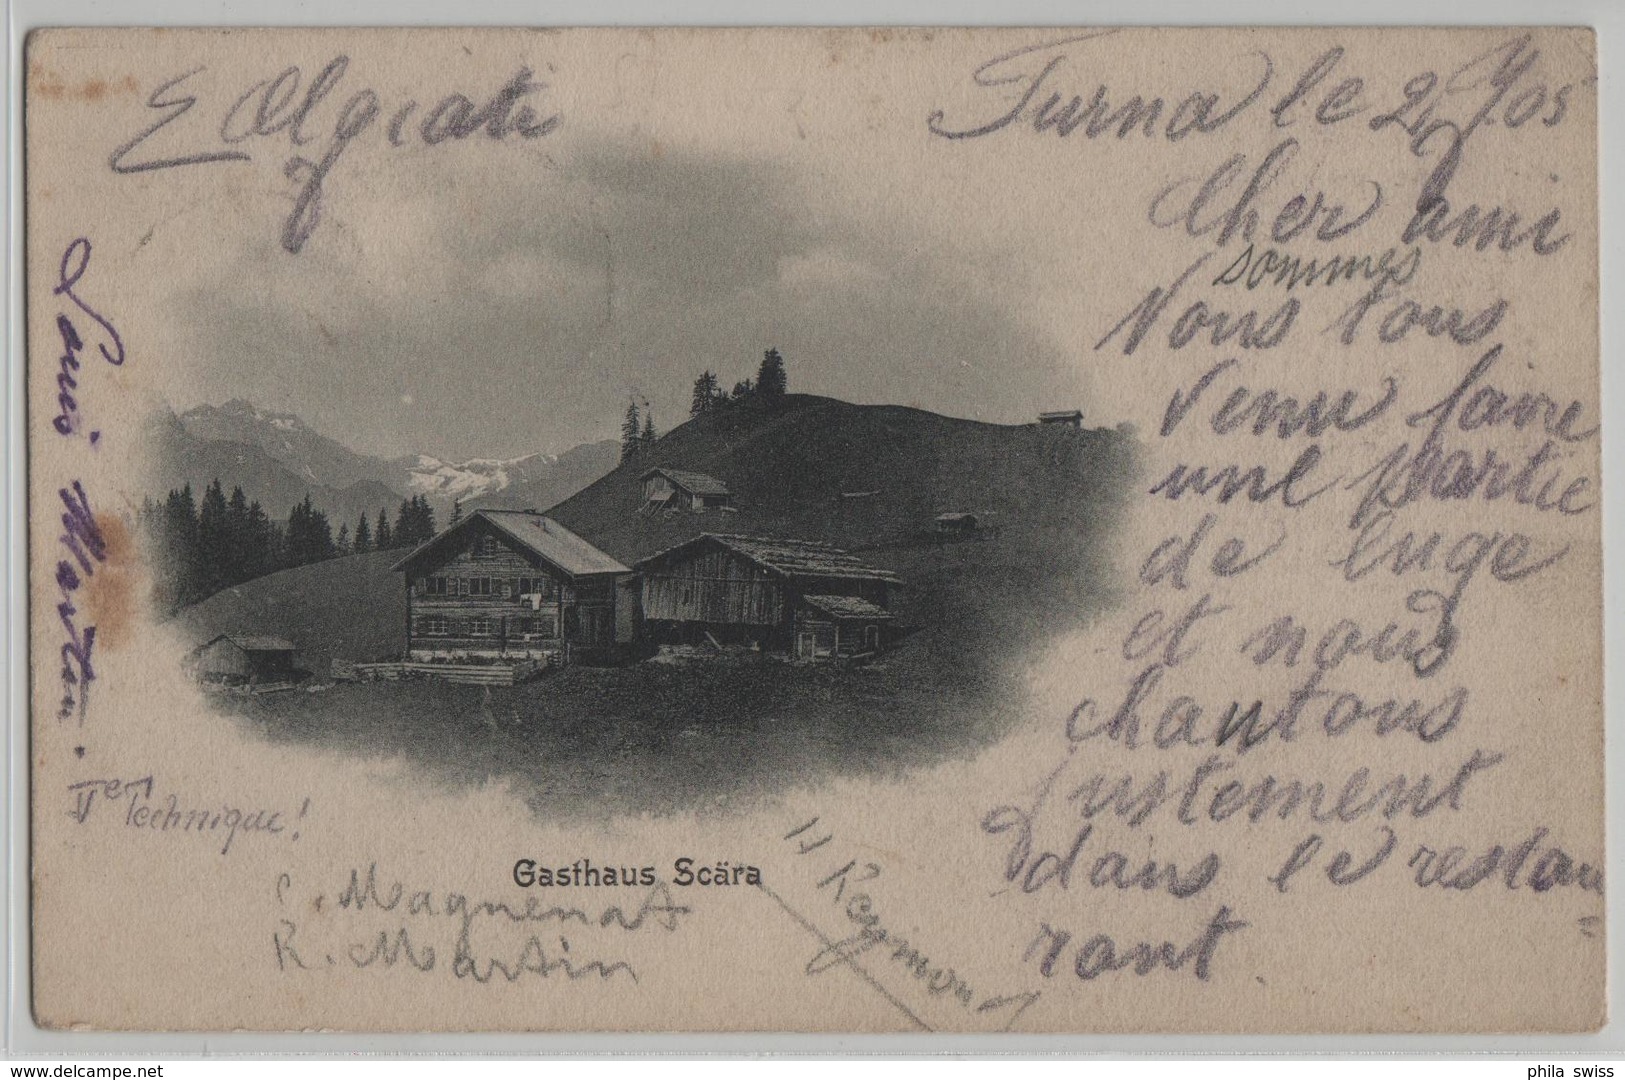 Furna le 2, 05
Cher ami
sommes
Nous tous
venu faire
une partie
de luge
et nous
chantons
justement
dans le restau
=
rant.
Louis Martin.
Ve Technique!
Gasthaus Scära
C. Magnenat
R. Martin
H Reymond
delcampe.net
phila_swiss